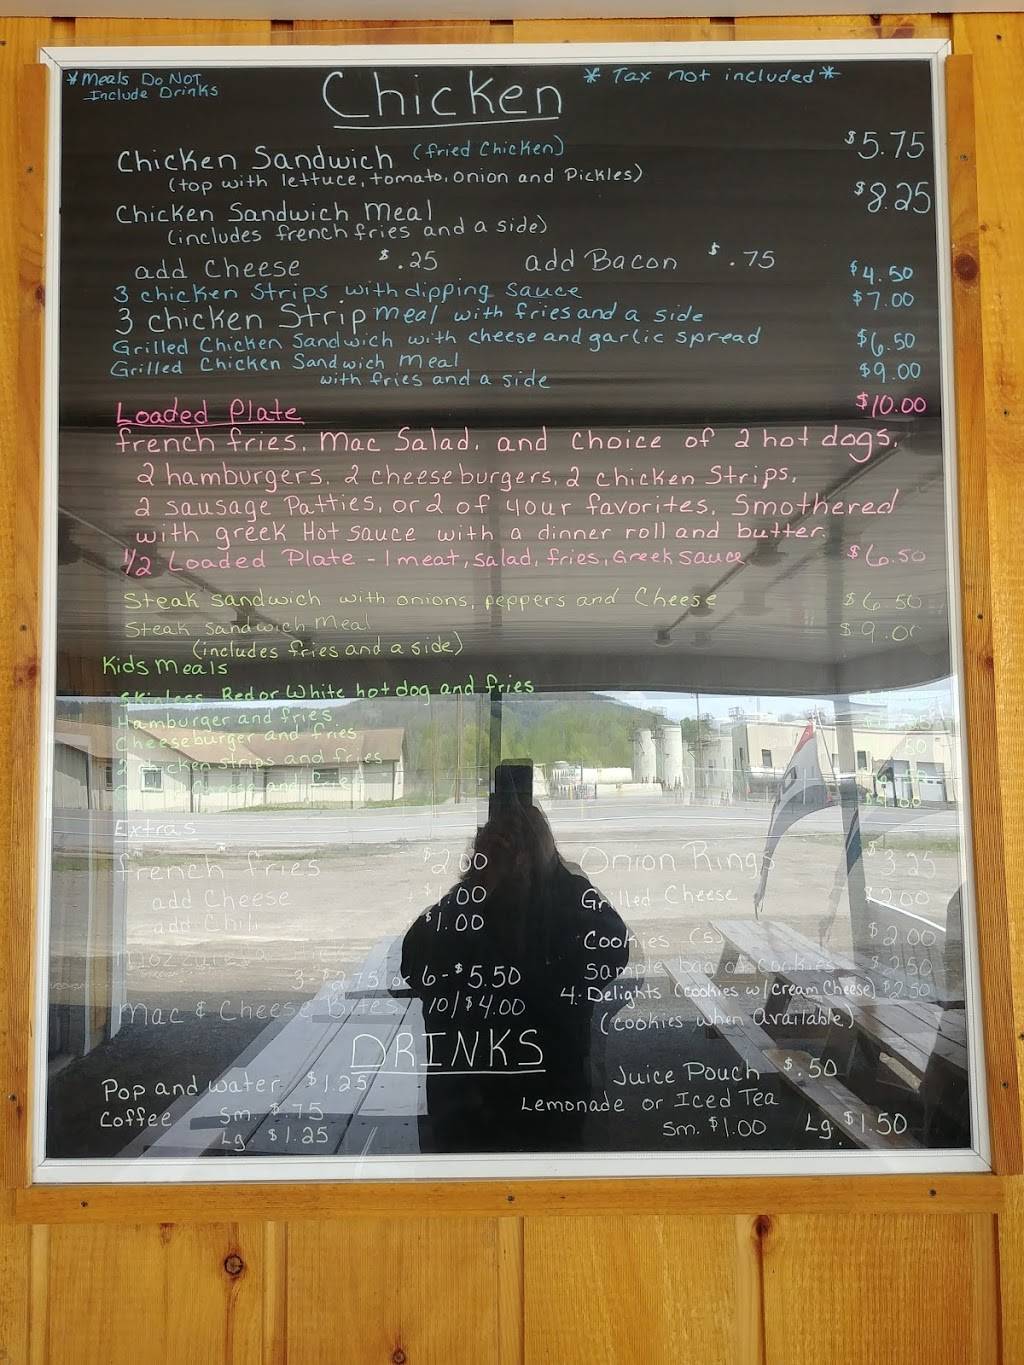 *Meals Do Not
Include Drinks
Chicken
* Tax not included *
Chicken Sandwich (fried Chicken) $5.75
(top with lettuce, tomato, onion and Pickles)
Chicken Sandwich Meal $8.25
(includes french fries and a side)
add Cheese $.25 add Bacon $.75
3 chicken Strips with dipping sauce $4.50
3 chicken Strip meal with fries and a side $7.00
Grilled Chicken Sandwich with cheese and garlic spread $6.50
Grilled Chicken Sandwich Meal $9.00
with fries and a side
Loaded Plate $10.00
french fries, Mac Salad, and choice of 2 hot dogs,
2 hamburgers, 2 cheeseburgers, 2 chicken Strips,
2 sausage Patties, or 2 of your favorites. Smothered
with greek Hot sauce with a dinner roll and butter.
1/2 Loaded Plate - 1 meat, salad, fries, Greek Sauce $6.50
Steak sandwich with onions, peppers and Cheese $6.50
Steak Sandwich Meal $9.00
(includes fries and a side)
Kids Meals
Skinless Red or White hot dog and fries
Hamburger and fries
Cheeseburger and fries
2 chicken strips and fries
Extras
french fries $2.00
add Cheese + $1.00
add Chili $1.00
3-$2.75 or 6-$5.50
Mac & Cheese Bites 10/$4.00
Onion Rings $3.25
Grilled Cheese $2.00
Cookies (5) $2.00
Sample bag of cookies $2.50
4. Delights (cookies w/cream Cheese) $2.50
(cookies when Available)
DRINKS
Pop and water $1.25
Coffee Sm. $.75
Lg. $1.25
Juice Pouch $.50
Lemonade or Iced Tea
Sm. $1.00 Lg. $1.50